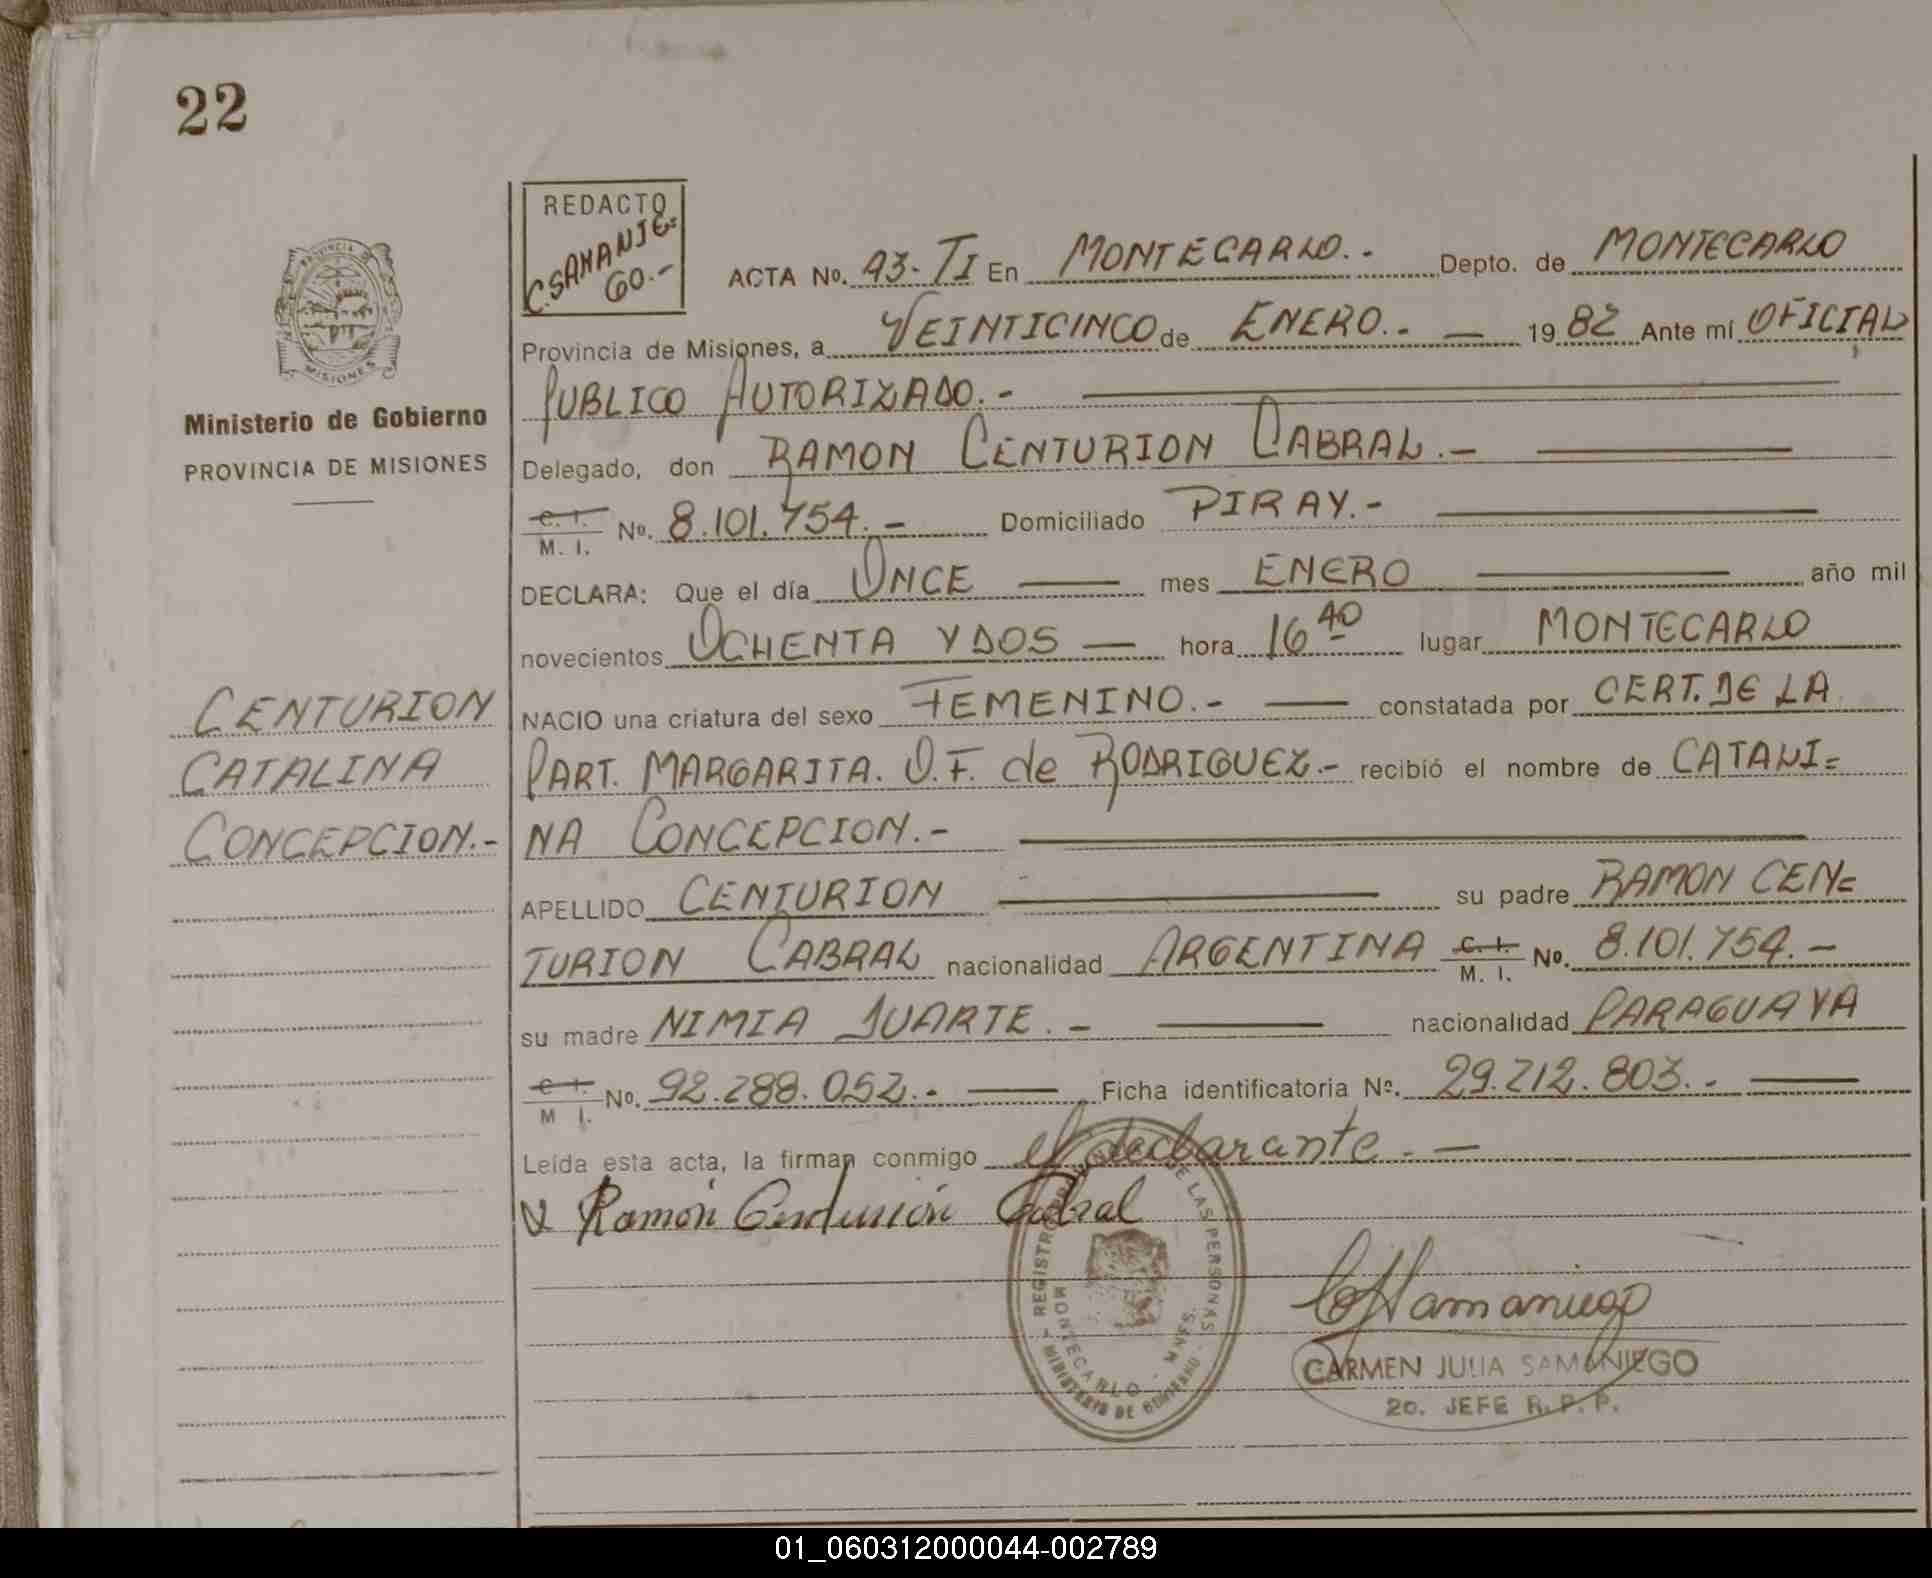 22
REDACTO
C. SAMANIE=
GO.-
ACTA No. 43-TI En MONTECARLO.- Depto. de MONTECARLO
Provincia de Misiones, a VEINTICINCO de ENERO.- — 1982 Ante mí OFICIAL
PUBLICO AUTORIZADO.-
Ministerio de Gobierno
PROVINCIA DE MISIONES
Delegado, don RAMON CENTURION CABRAL.-
C. I.
M. I. No. 8.101.754.- Domiciliado PIRAY.-
DECLARA: Que el día ONCE — mes ENERO — año mil
novecientos OCHENTA Y DOS — hora 16 40 lugar MONTECARLO
CENTURION
CATALINA
CONCEPCION.-
NACIO una criatura del sexo FEMENINO.- — constatada por CERT. DE LA
PART. MARGARITA. O.F. de RODRIGUEZ.- recibió el nombre de CATALI=
NA CONCEPCION.-
APELLIDO CENTURION — su padre RAMON CEN=
TURION CABRAL nacionalidad ARGENTINA C. I. M. I. No. 8.101.754.-
su madre NIMIA DUARTE.- — nacionalidad PARAGUAYA
C. I.
M I. No. 92.288.052.- — Ficha identificatoria Nº. 29.212.803.- —
Leída esta acta, la firman conmigo el declarante.-
Ramón Centurión Cabral
REGISTRO DE LAS PERSONAS
MONTECARLO - MNES.
MINISTERIO DE GOBIERNO
CSamaniego
CARMEN JULIA SAMANIEGO
2o. JEFE R. P. P.
PROVINCIA
MISIONES
01_060312000044-002789